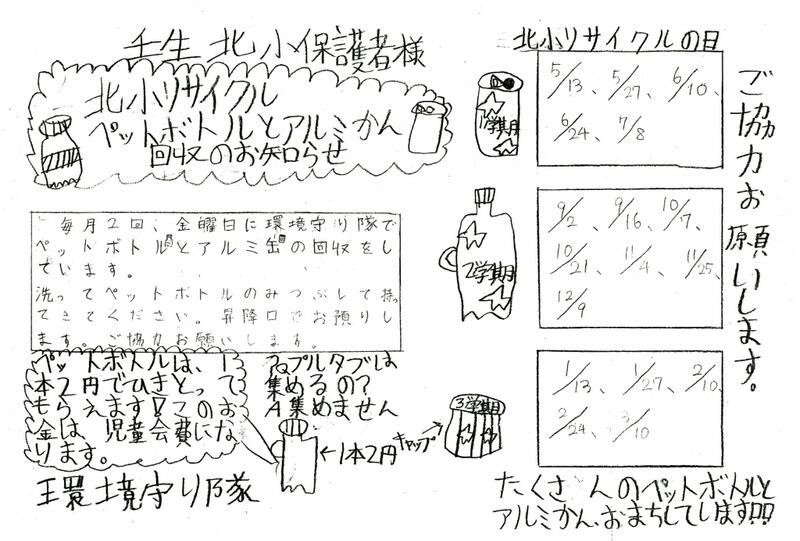 壬生北小保護者様
北小リサイクル
ペットボトルとアルミかん
回収のお知らせ
毎月2回、金曜日に環境守り隊で
ペットボトルとアルミ缶の回収をし
ています。
洗ってペットボトルのみつぶして持っ
てきてください。昇降口でお預りし
ます。ご協力お願いします。
ペットボトルは、1
本2円でひきとって
もらえます!このお
金は、児童会費にな
ります。
Qプルタブは
集めるの?
A集めません
←1本2円
キャップ→
環境守り隊
北小リサイクルの日
1学期
5/13、5/27、6/10、
6/24、7/8
2学期
9/2、9/16、10/7、
10/21、11/4、11/25、
12/9
3学期
1/13、1/27、2/10、
2/24、3/10
ご協力お願いします。
たくさんのペットボトルと
アルミかん、おまちしています!!!